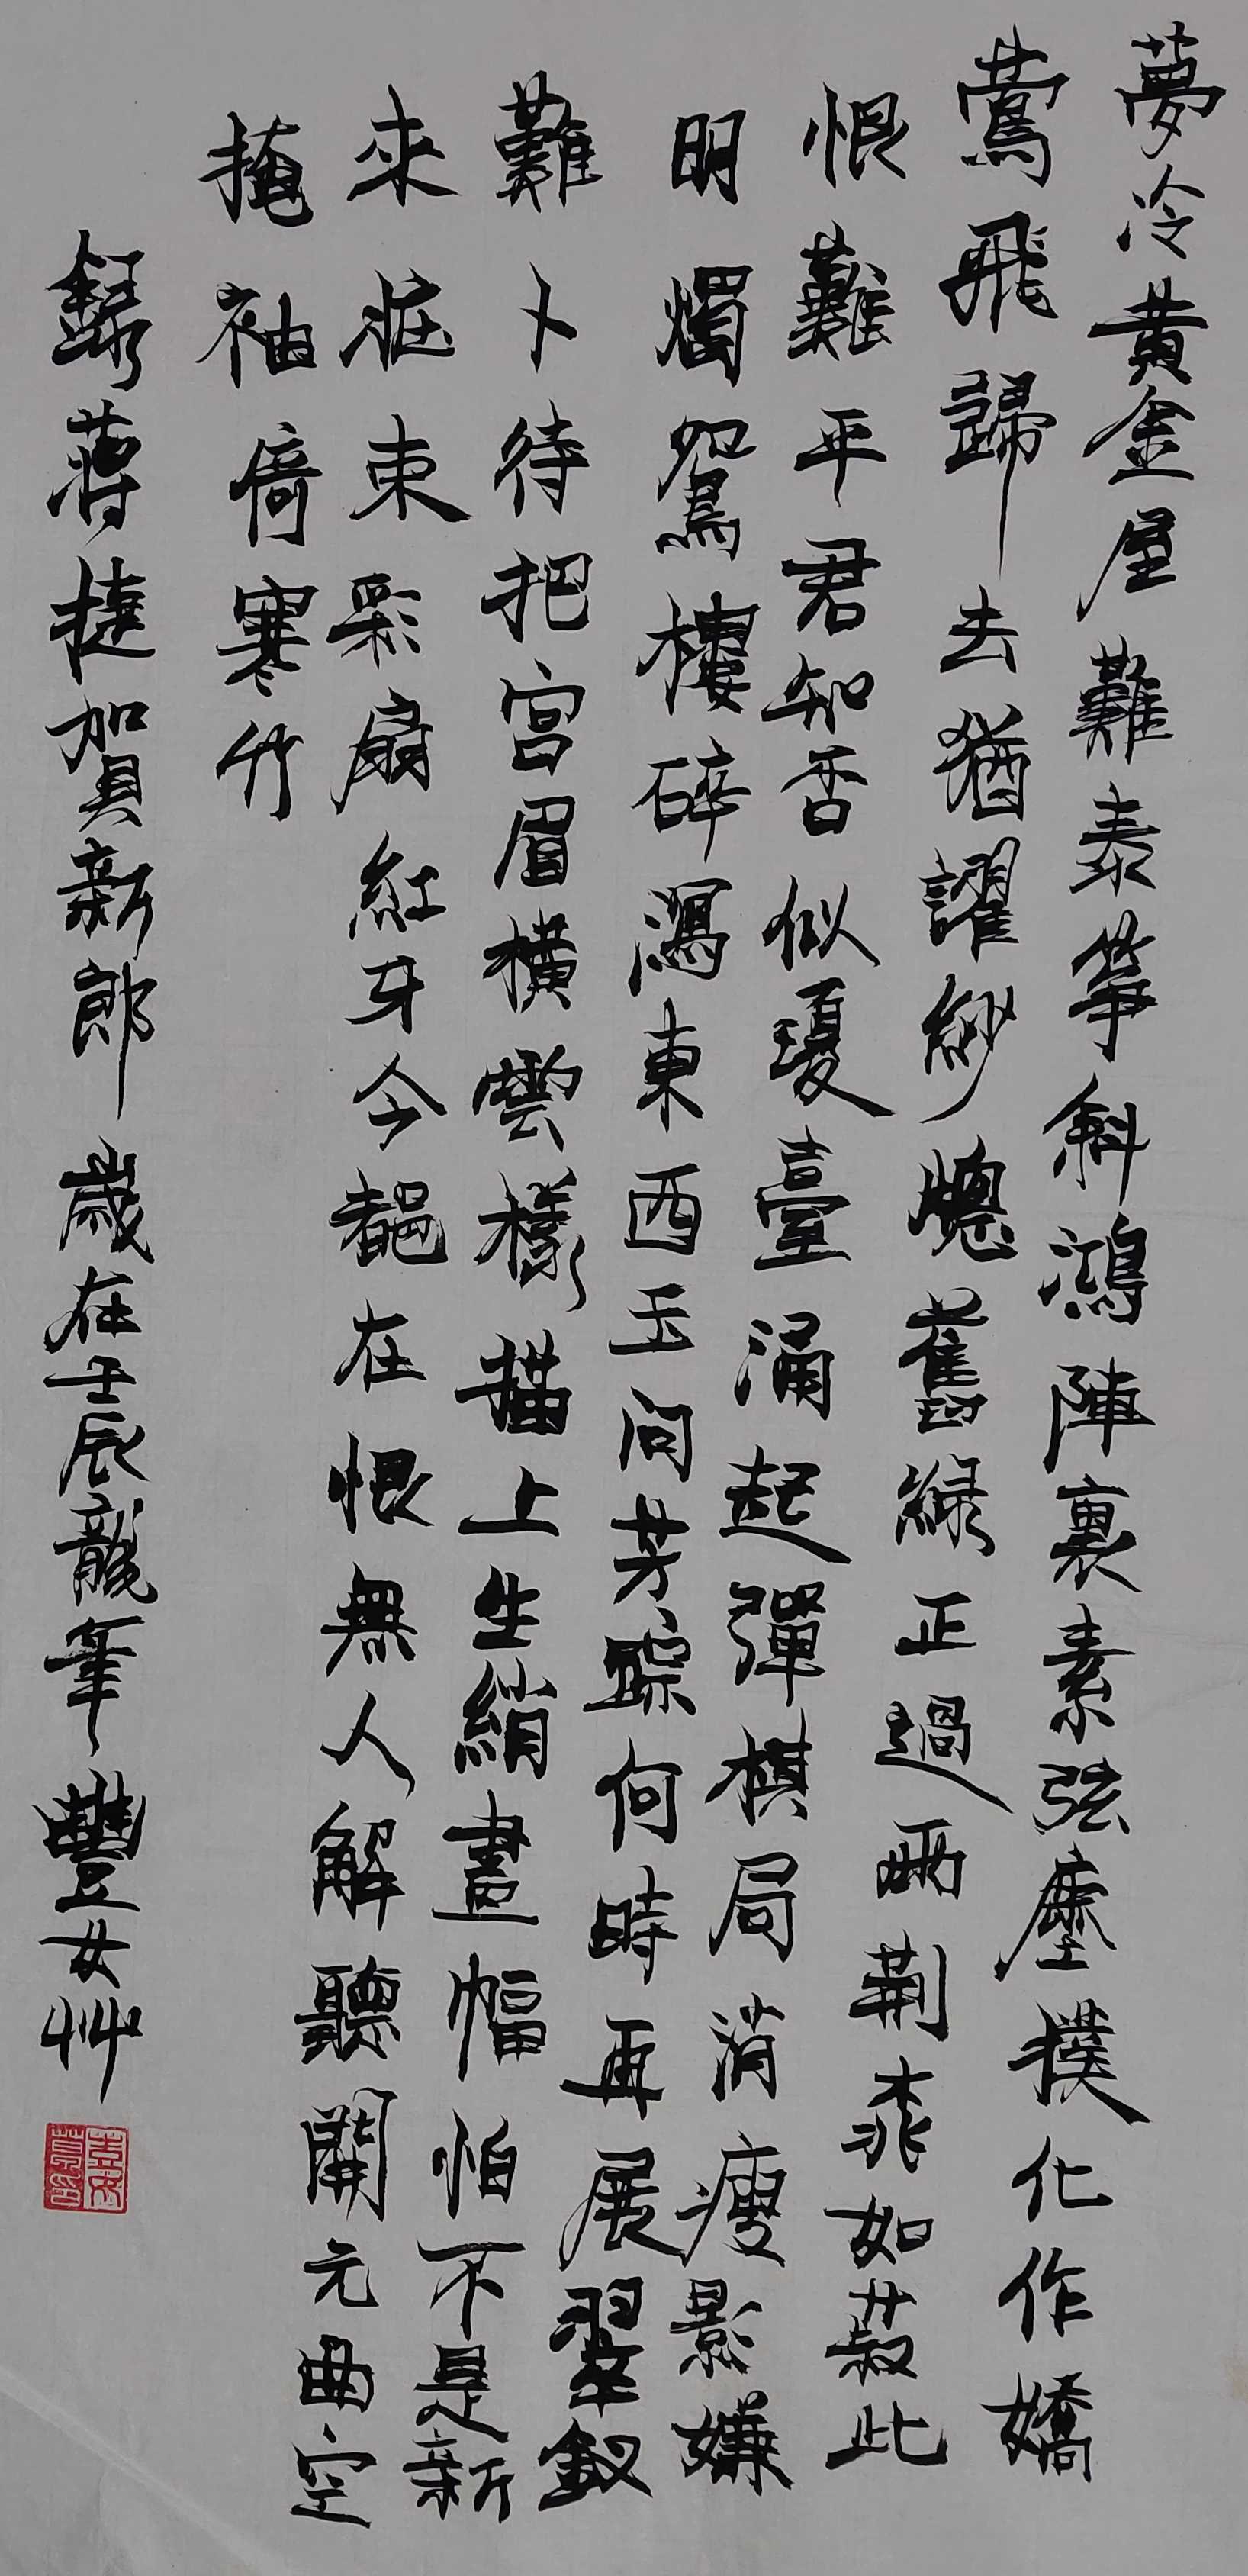 夢冷黃金屋難秦筝斜鴻陣裏素弦塵撲化作嬌
鶯飛歸去猶認紗窻舊綠正過雨荆桃如菽此
恨難平君知否似瓊臺涌起彈棋局消瘦影嫌
明燭鴛樓碎瀉東西玉問芳踪何時再展翠釵
難卜待把宫眉橫雲樣描上生綃畫幅怕不是新
來粧束彩扇紅牙今都在恨無人解聽開元曲空
掩袖倚寒竹
錄蔣捷賀新郎 歲在壬辰龍年 豐女艸